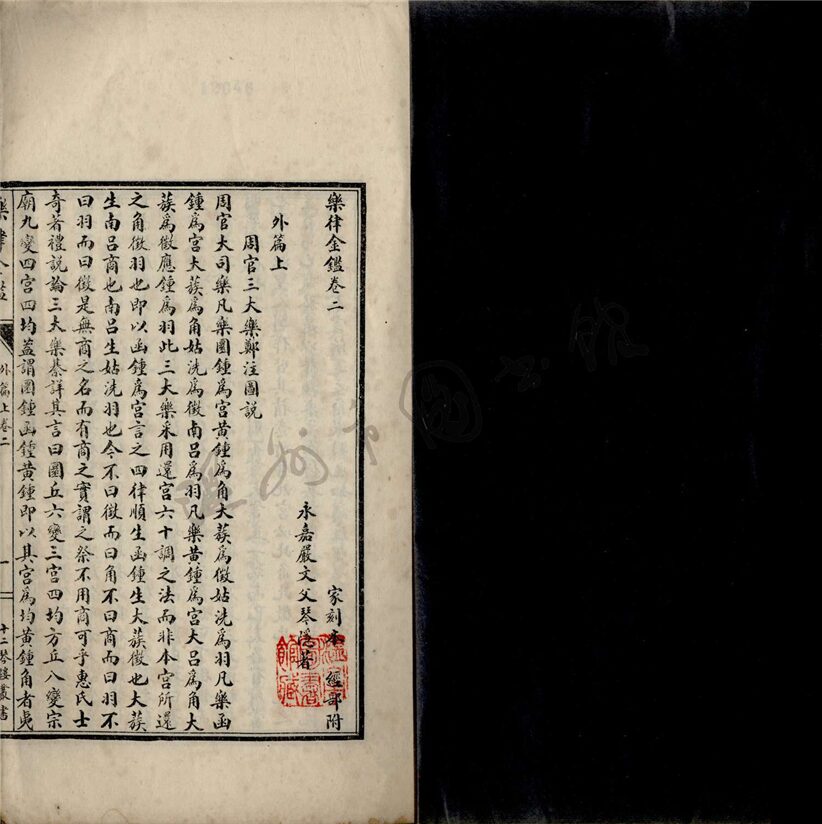 樂律金鑑卷二
家刻本 經部附
永嘉嚴文父琴隱著
外篇上
周官三大樂鄭注圖説
周官大司樂凡樂圜鍾爲宮黃鍾爲角大蔟爲徵姑洗爲羽凡樂函
鍾爲宮大蔟爲角姑洗爲徵南呂爲羽凡樂黃鍾爲宮大呂爲角大
蔟爲徵應鍾爲羽此三大樂采用還宮六十調之法而非本宮所還
之角徵羽也即以函鍾爲宮言之四律順生函鍾生大蔟徵也大蔟
生南呂商也南呂生姑洗羽也今不曰徵而曰角不曰商而曰羽不
曰羽而曰徵是無商之名而有商之實謂之祭不用商可乎惠氏士
奇著禮説論三大樂綦詳其言曰圜丘六變三宮四均方丘八變宗
廟九變四宮四均蓋謂圜鍾函鍾黃鍾即以其宮爲均黃鍾角者夷
樂律金鑑
外篇上卷二
一
十二琴樓叢書
館藏
圖書
12646